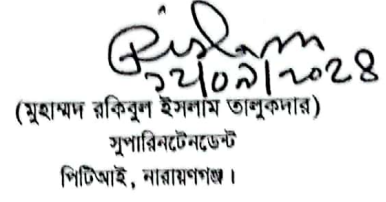 Rislam
১২/০৯/২০২৪
(মুহাম্মদ রকিবুল ইসলাম তালুকদার)
সুপারিনটেনডেন্ট
পিটিআই, নারায়ণগঞ্জ।